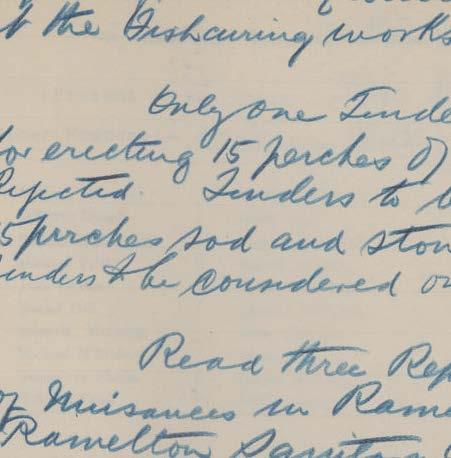 t the Fishcuring works
Only one Tende
for erecting 15 perches of
Rejected. Tenders to b
5 perches sod and ston
Tenders to be considered on
Read three Rep
of Nuisances in Rame
Ramelton Sanitary